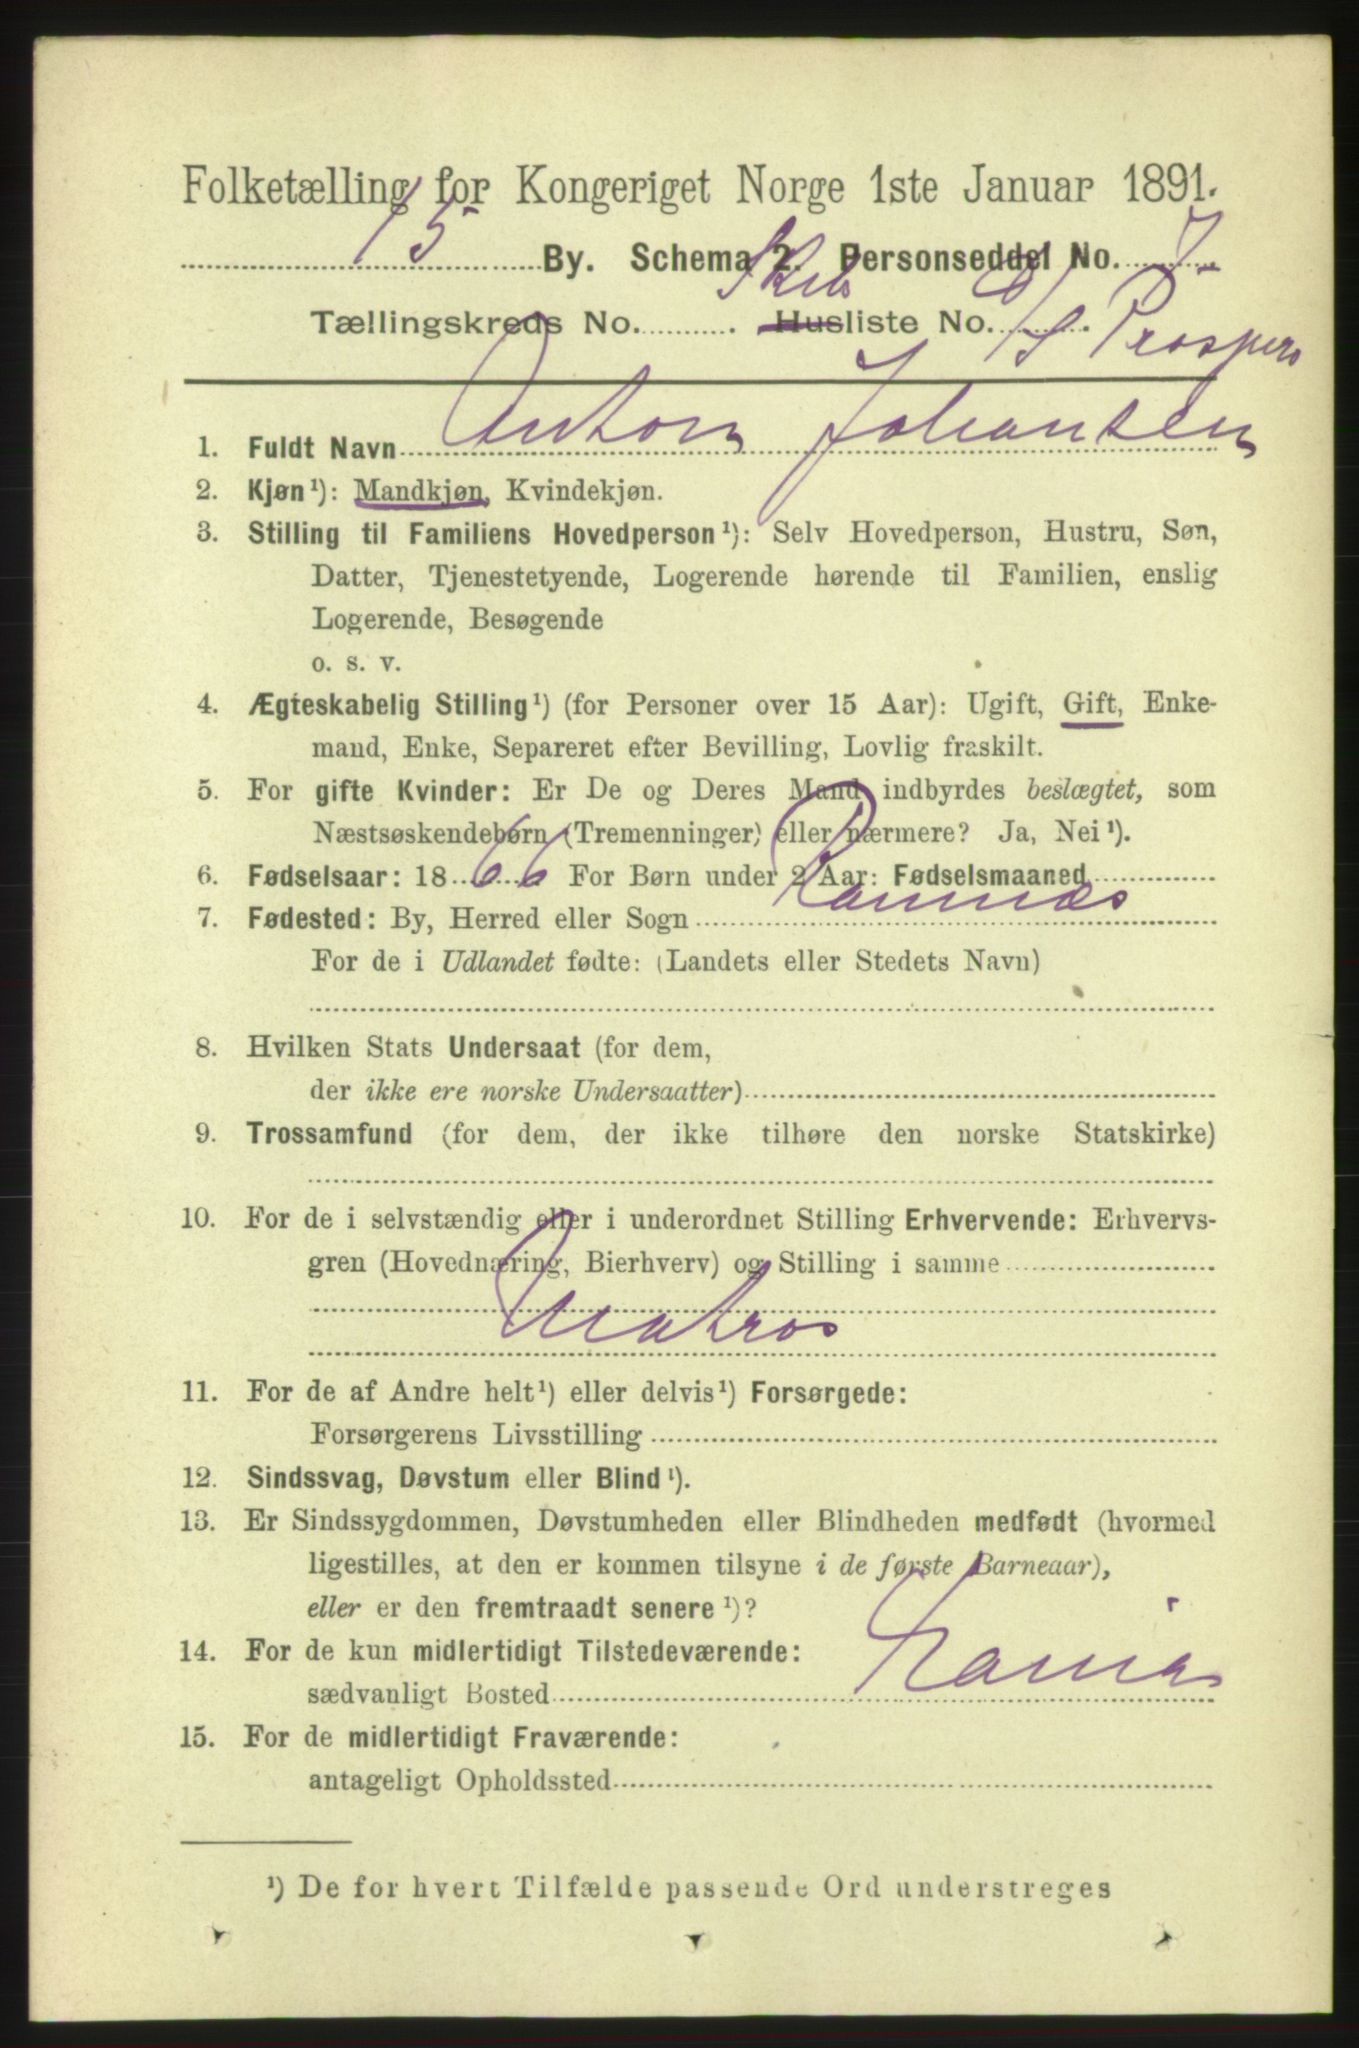 Folketælling for Kongeriget Norge 1ste Januar 1891.
15 By. Schema 2. Personseddel No. 7
Tællingskreds No. ........ . Husliste No. ........ . Skibs D/S Prospero
1. Fuldt Navn Anton Johansen
2. Kjøn¹): Mandkjøn, Kvindekjøn.
3. Stilling til Familiens Hovedperson¹): Selv Hovedperson, Hustru, Søn,
Datter, Tjenestetyende, Logerende hørende til Familien, enslig
Logerende, Besøgende
o. s. v.
4. Ægteskabelig Stilling¹) (for Personer over 15 Aar): Ugift, Gift, Enke-
mand, Enke, Separeret efter Bevilling, Lovlig fraskilt.
5. For gifte Kvinder: Er De og Deres Mand indbyrdes beslægtet, som
Næstsøskendebørn (Tremenninger) eller nærmere? Ja, Nei¹).
6. Fødselsaar: 1866 For Børn under 2 Aar: Fødselsmaaned
7. Fødested: By, Herred eller Sogn Ramnæs
For de i Udlandet fødte: (Landets eller Stedets Navn)
8. Hvilken Stats Undersaat (for dem,
der ikke ere norske Undersaatter)
9. Trossamfund (for dem, der ikke tilhøre den norske Statskirke)
10. For de i selvstændig eller i underordnet Stilling Erhvervende: Erhvervs-
gren (Hovednæring, Bierhverv) og Stilling i samme
Matros
11. For de af Andre helt¹) eller delvis¹) Forsørgede:
Forsørgerens Livsstilling
12. Sindssvag, Døvstum eller Blind¹).
13. Er Sindssygdommen, Døvstumheden eller Blindheden medfødt (hvormed
ligestilles, at den er kommen tilsyne i de første Barneaar),
eller er den fremtraadt senere¹)?
14. For de kun midlertidigt Tilstedeværende:
sædvanligt Bosted
15. For de midlertidigt Fraværende:
antageligt Opholdssted
¹) De for hvert Tilfælde passende Ord understreges